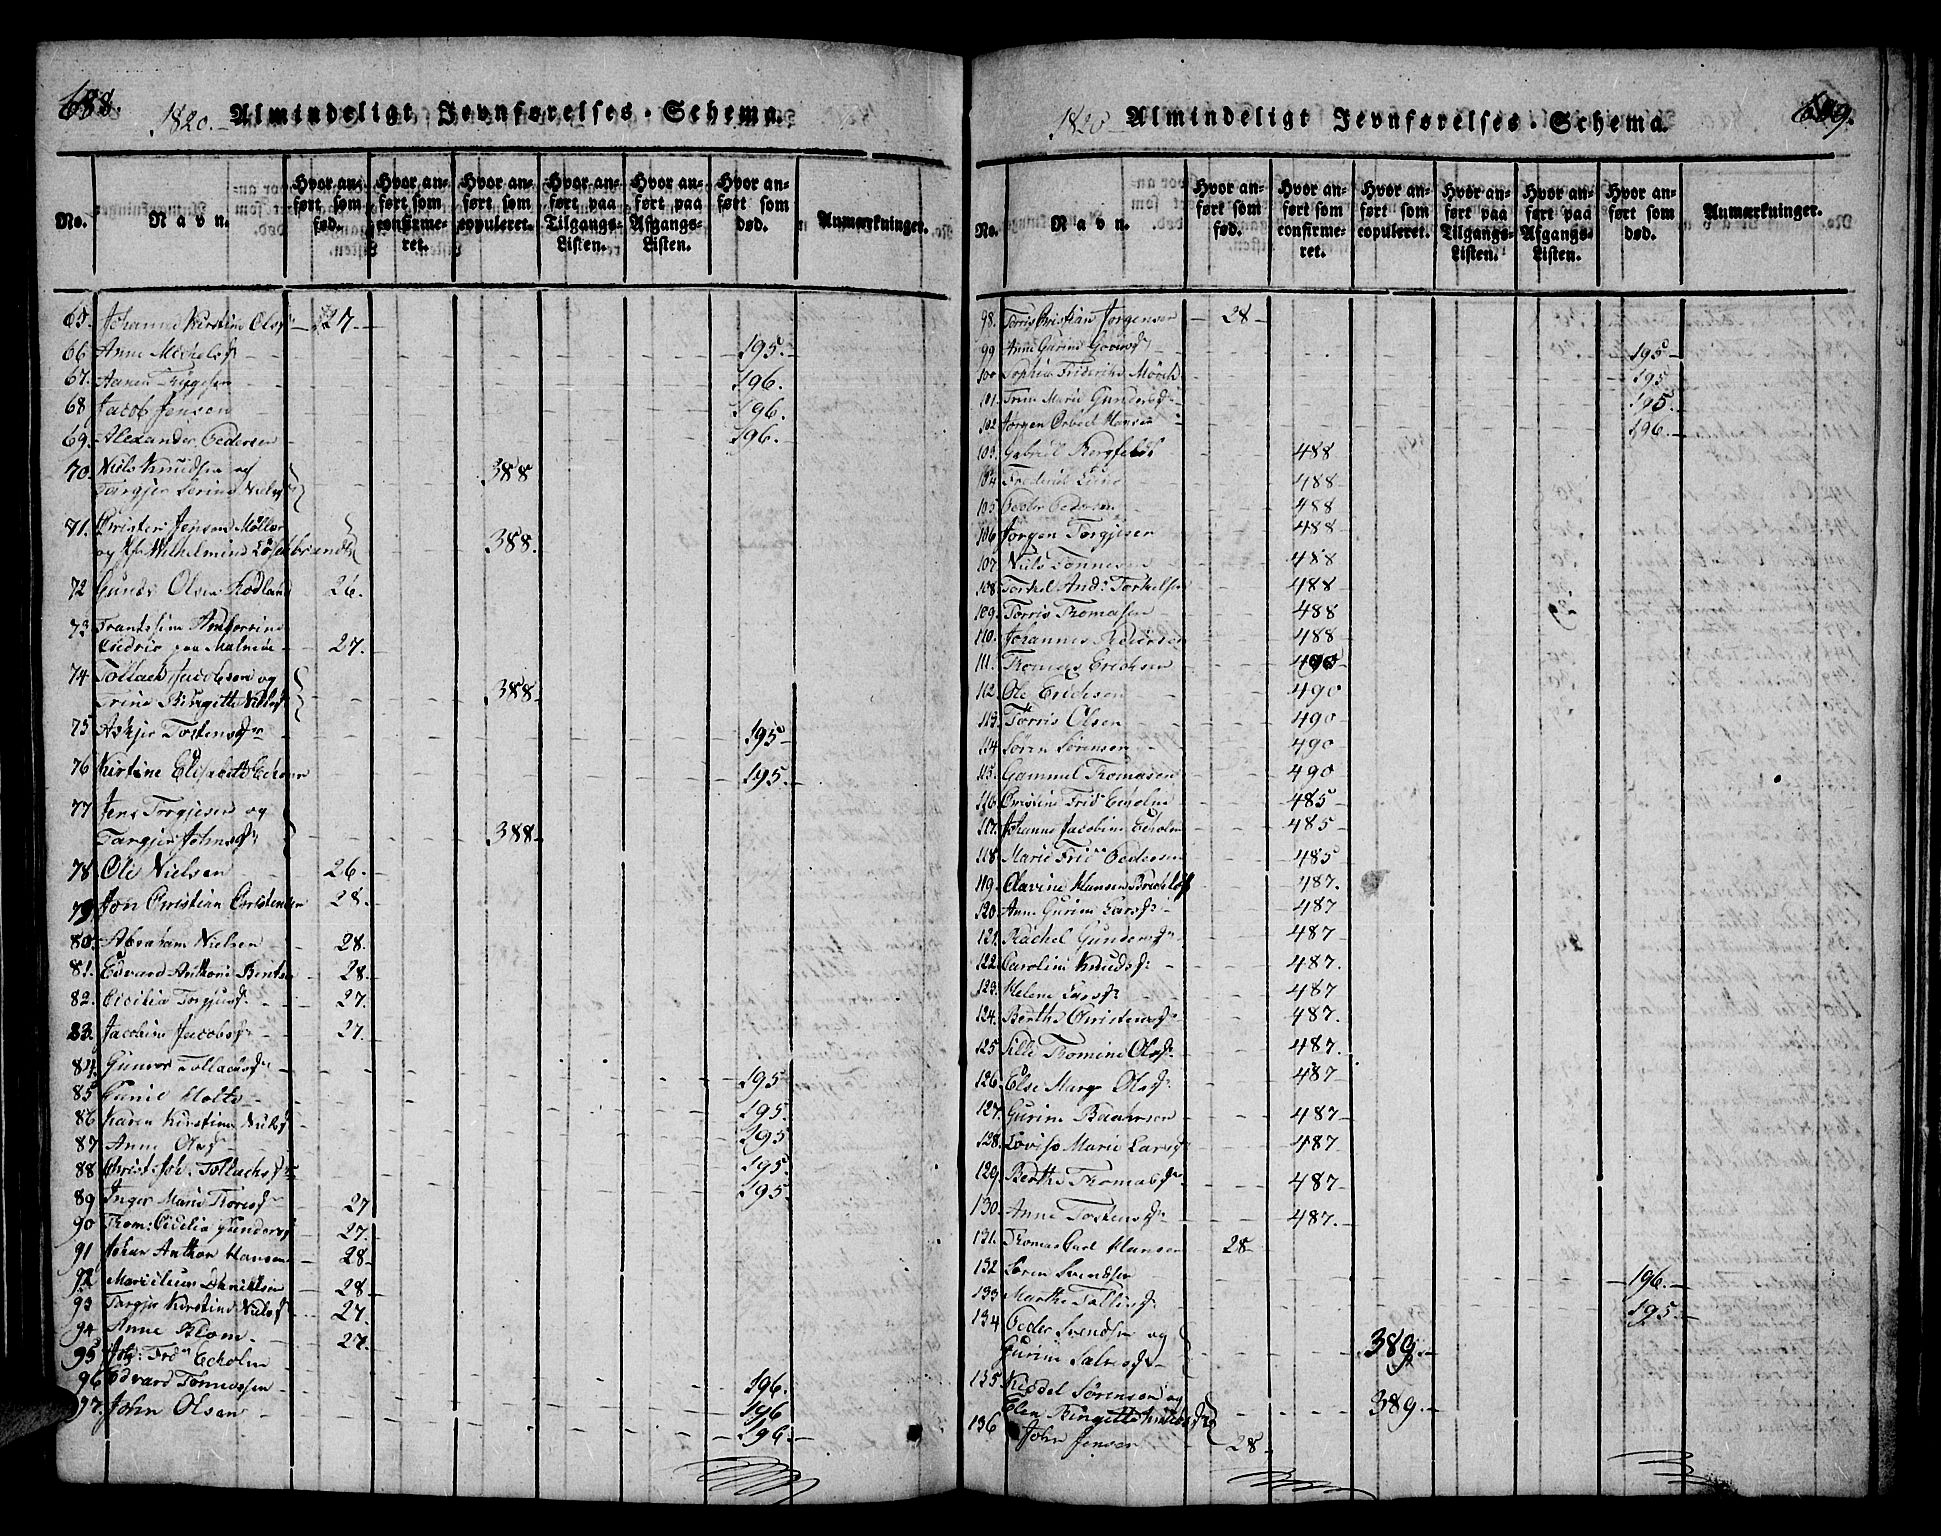 688.
1820.- Almindeligt Jevnførelses-Schema.
No.
Navn.
Hvor anført som fød.
Hvor anført som confirmeret.
Hvor anført som copuleret.
Hvor anført paa Tilgangs-Listen.
Hvor anført paa Afgangs-Listen.
Hvor anført som død.
Anmærkninger.
65. Johanne Kirstine Olsdr 127.
66 Anne Michelsdr 195.
67. Aanen Trygesen 196.
68 Jacob Jensen 196.
69. Alexander Pedersen 196.
70. Niels Knudsen og
Targjer Serine Nielsdr 388
71. Christen Jensen Møller
og 388.
72 Gunder Olsen Rødland 26.
73
paa Malmøe 27.
74 Tollach Jacobsen og
Trine Birgitte Nielsdr 388
75. Askjer Tostensdr 195
76 Kirstine Elisabeth Echorn 195.
77 Jens Torgjesen og
Targjer Johnsdr 388
78. Ole Nielsen 26.
79 Jon Christian Christensen 28.
80. Abraham Nielsen 28.
81. Edvard Anthoni Bentsen 28.
82. Cicilia Torgjusdr 27.
83. Jacobine Jacobsdr 27.
84. Gunvor Tollachsdr 195
85 Gunil Holte 195.
86 Karen Kirstine Nielsdr 195
87 Anne Olsdr 195.
88 Christ: Joh. Tollachsdr 195.
89 Inger Marie Thoresdr 27
90 Thom: Cicilia Gundersdr 27.
91 Johan Anthon Hansen 28
92 Danielsen 28
93 Targjer Kirstine Nielsdr 27.
94 Anne Blom 27.
95 Joh: Frdr Echolm
96 Edvard Tønnessen 196.
97. John Olsen 196
196.
689.
1820 Almindeligt Jevnførelses-Schema.
No.
Navn.
Hvor anført som fød.
Hvor anført som confirmeret.
Hvor anført som copuleret.
Hvor anført paa Tilgangs-Listen.
Hvor anført paa Afgangs-Listen.
Hvor anført som død.
Anmærkninger.
98. Torris Christian Jørgensen 28
99 Anne Gurine 195
100 Sophia Friderike Mørch 195
101. Trine Marie Gundersdr 195.
102 Jørgen Hansen 196.
103. Gabriel 488
104 Frederik 488
105 Peder Pedersen 488
106 Jørgen Torgjesen 488
107 Niels Tønnesen 488
108. Torkel And: Torkelsen 488
109. Torris Thomasen 488
110. Johannes Pedersen 488
111. Thomas Erichsen 490
112. Ole Erichsen 490
113. Torris Olsen 490
114 Søren Sørensen 490
115. Gammel Thomasen 490
116 Christine Frid Echolm 485
117. Johanne Jacobine Echolm 485
118 Marie Frid Pedersen 485
119. Olavine Hansen 487.
120. Anne Gurine Larsdr 487
121. Rachel Gundersdr 487
122. Caroline Knudsdr 487.
123. Helene Larsdr 487
124. Berthe Christensdr 487.
125 Sille Thomine Olsdr 487.
126. Else Margr Olsdr 487
127. Gurine Baahnsen 487
128. Lovise Marie Larsdr 487
129. Berthe Thomasdr 487
130. Anne Tostensdr 487.
131. Thomas Carl Hansen 28
132 Søren Svendsen 196.
133 Marthe Tallisdr 195.
134 Peder Svendsen og
Gurine Salvesdr 389.
135 Kieddel Sørensen og
Elen Birgitte 389.
136 John Jensen 28